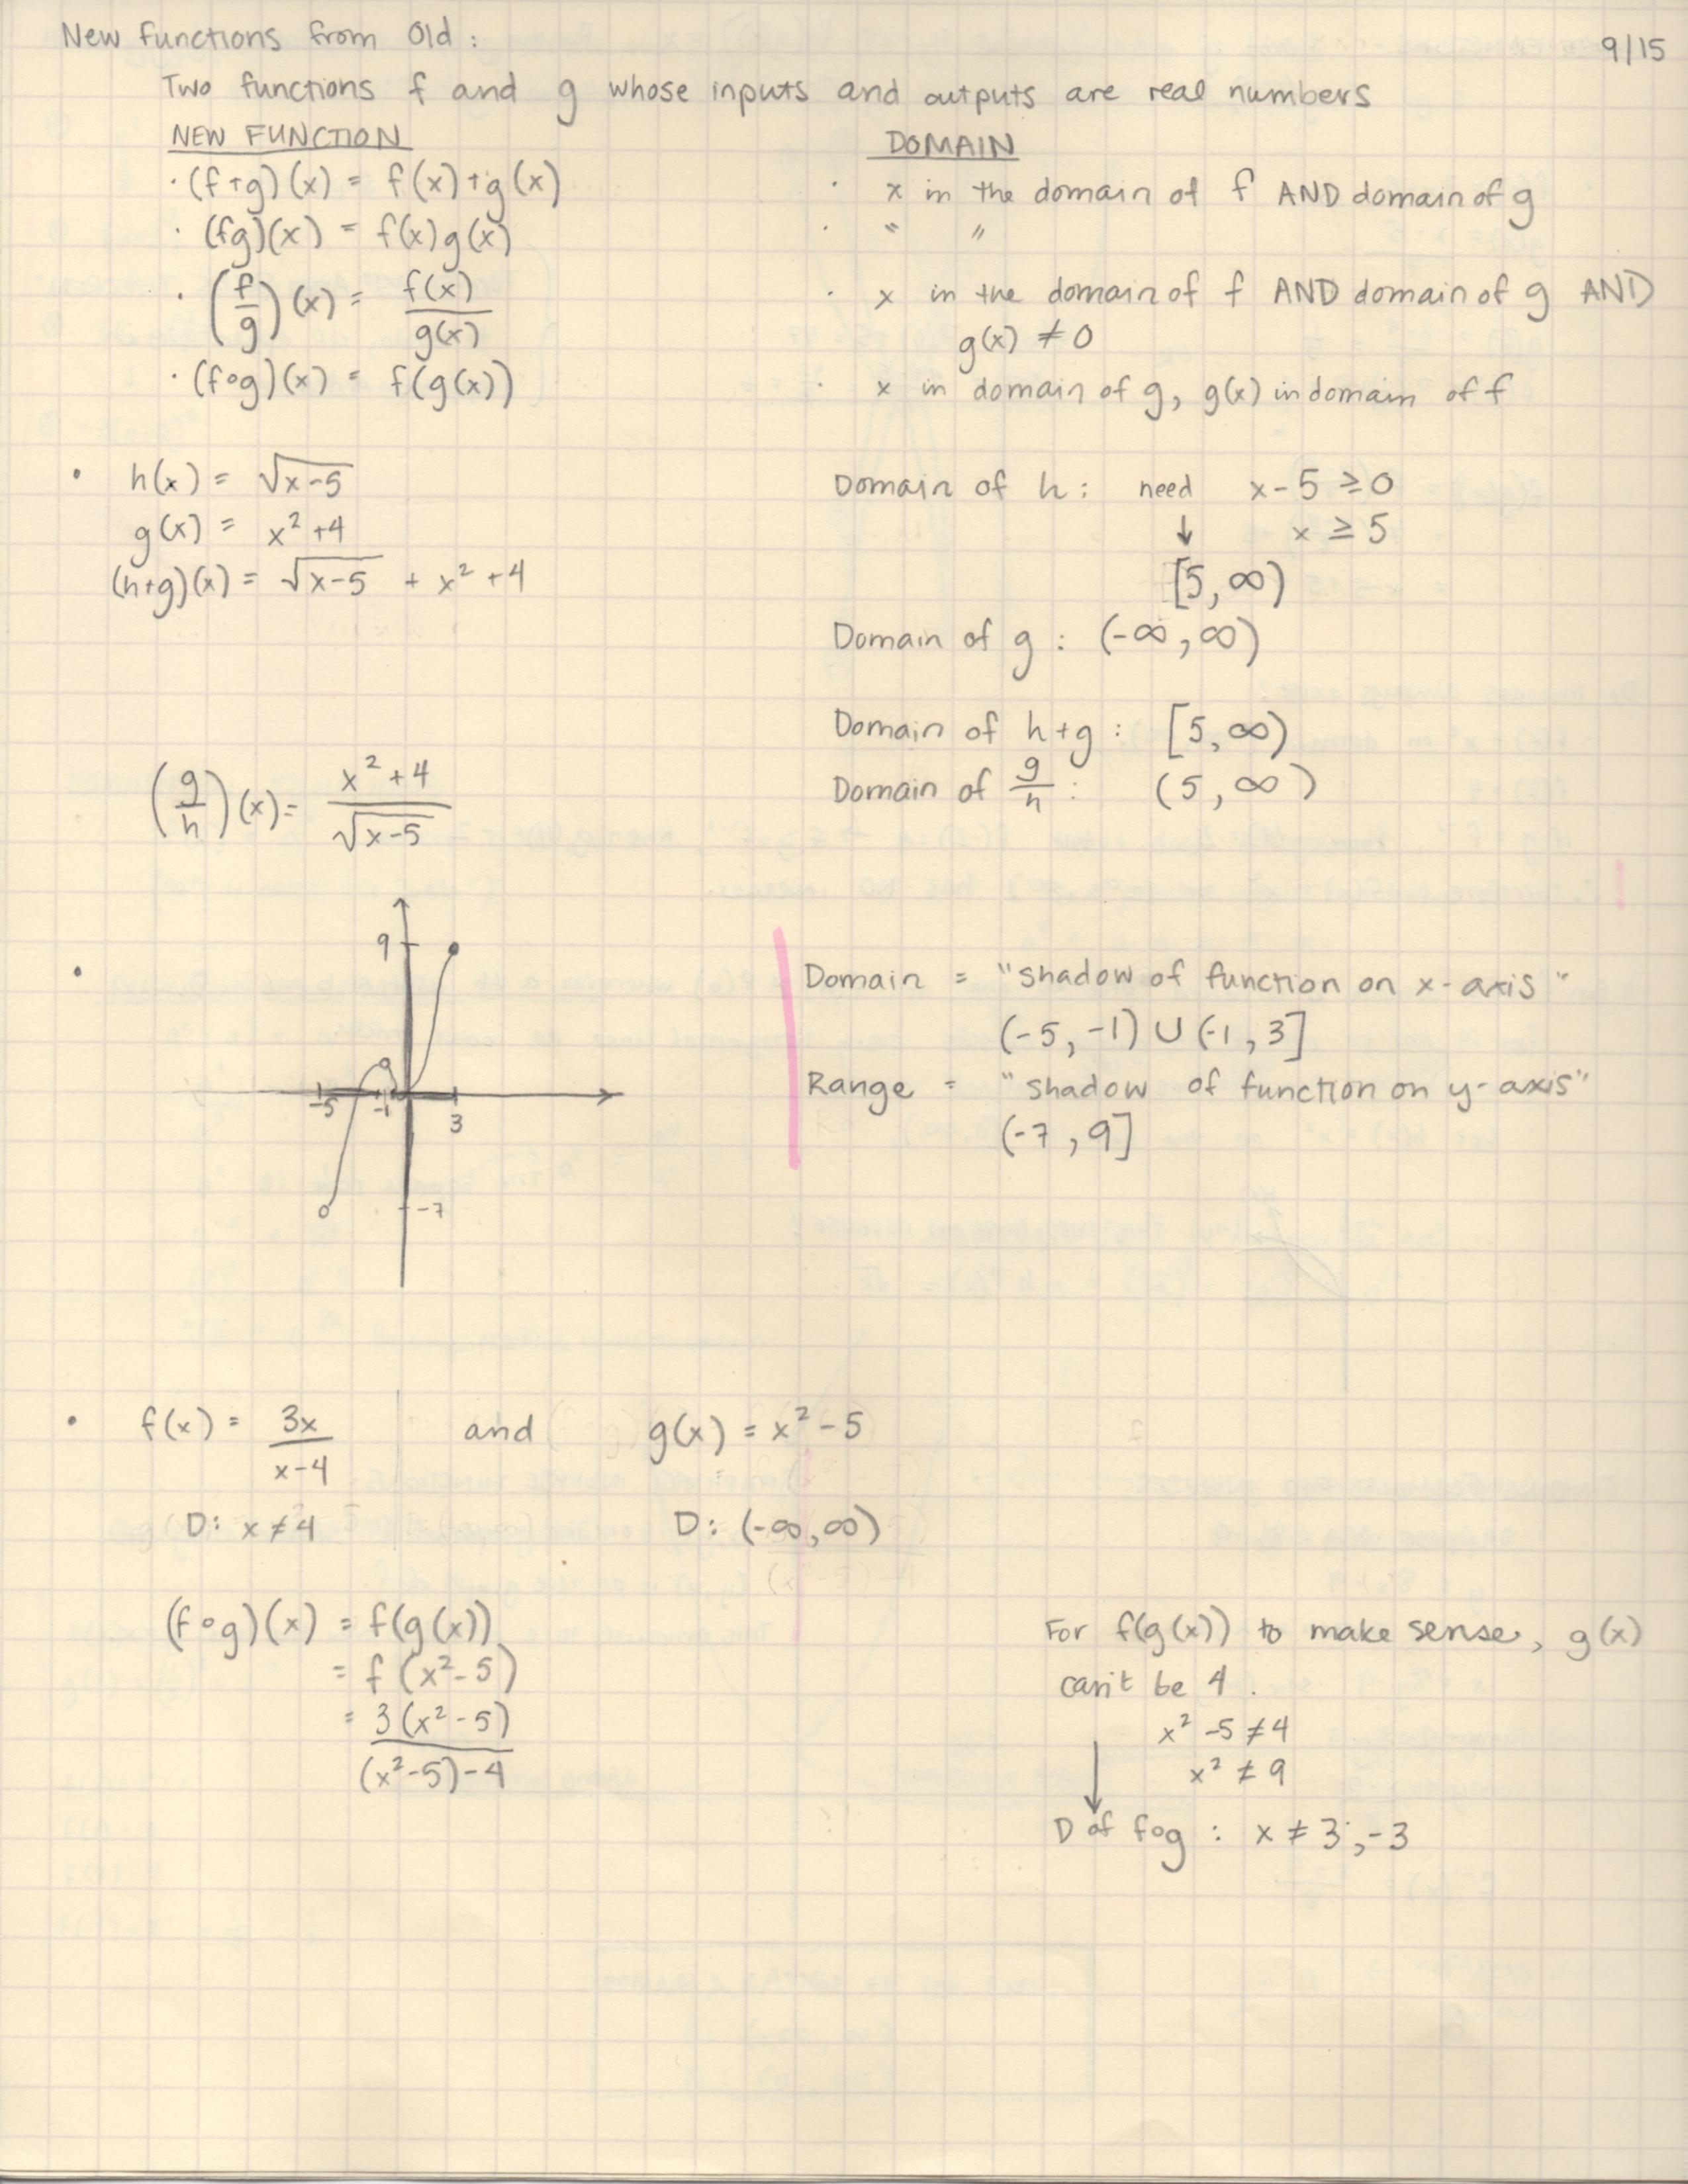 New functions from Old :
9/15
Two functions f and g whose inputs and outputs are real numbers
NEW FUNCTION
DOMAIN
· (f+g)(x) = f(x)+g(x)
· x in the domain of f AND domain of g
· (fg)(x) = f(x)g(x)
· " "
· (f/g)(x) = f(x)/g(x)
· x in the domain of f AND domain of g AND
g(x) ≠ 0
· (f∘g)(x) = f(g(x))
· x in domain of g, g(x) in domain of f
• h(x) = √(x-5)
Domain of h : need x-5 ≥ 0
g(x) = x² +4
↓ x ≥ 5
(h+g)(x) = √(x-5) + x² +4
[5, ∞)
Domain of g : (-∞, ∞)
Domain of h+g : [5, ∞)
(g/h)(x) = (x² +4)/√(x-5)
Domain of g/h : (5, ∞)
9
-5 -1 3
-7
• Domain = "shadow of function on x-axis"
(-5, -1) ∪ (-1, 3]
Range = "shadow of function on y-axis"
(-7, 9]
• f(x) = 3x/(x-4) and g(x) = x² -5
D: x ≠ 4 D: (-∞, ∞)
(f∘g)(x) = f(g(x))
= f(x²-5)
= 3(x²-5)/((x²-5)-4)
For f(g(x)) to make sense, g(x)
can't be 4.
x² -5 ≠ 4
x² ≠ 9
↓
D of f∘g : x ≠ 3, -3